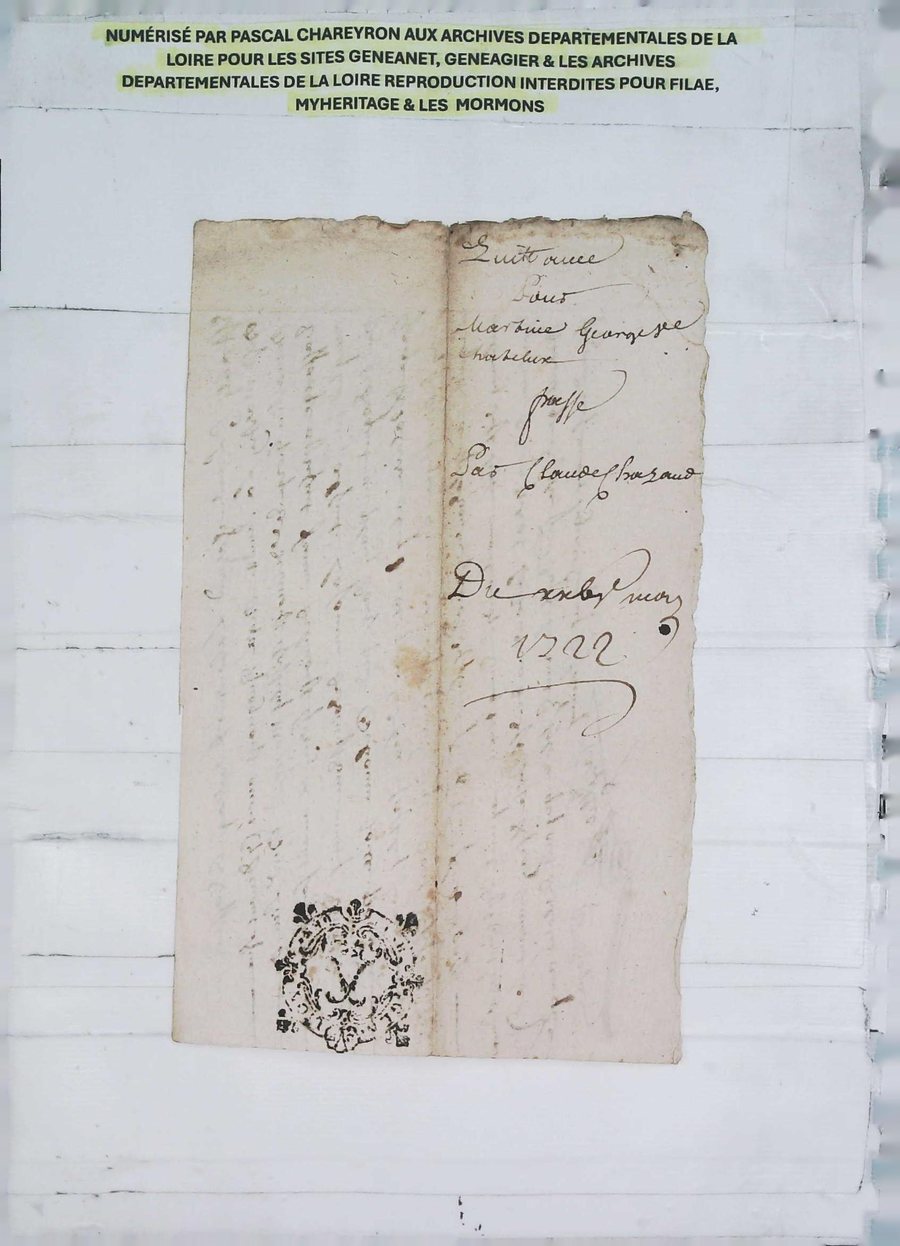 NUMÉRISÉ PAR PASCAL CHAREYRON AUX ARCHIVES DEPARTEMENTALES DE LA
LOIRE POUR LES SITES GENEANET, GENEAGIER & LES ARCHIVES
DEPARTEMENTALES DE LA LOIRE REPRODUCTION INTERDITES POUR FILAE,
MYHERITAGE & LES MORMONS
Quittance
Pour
Martine George de
Chatelux
passé
Par Claude Chazaud
Du may
1722